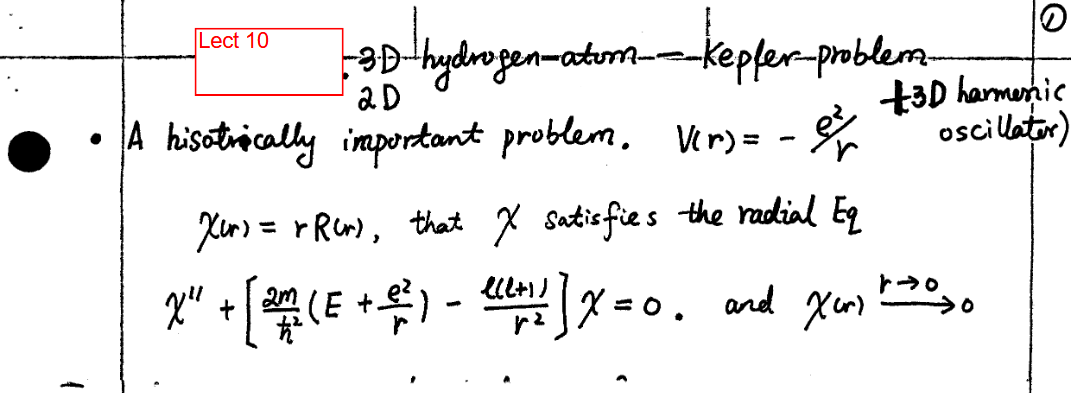 ①
Lect 10
• 3D hydrogen-atom — Kepler problem
2D
+3D harmonic
oscillator)
• A hisotrically important problem. V(r) = - e²/r
χ(r) = r R(r), that χ satisfies the radial Eq
χ'' + [2m/ħ² (E + e²/r) - l(l+1)/r²] χ = 0. and χ(r) r→0 ⟶ 0